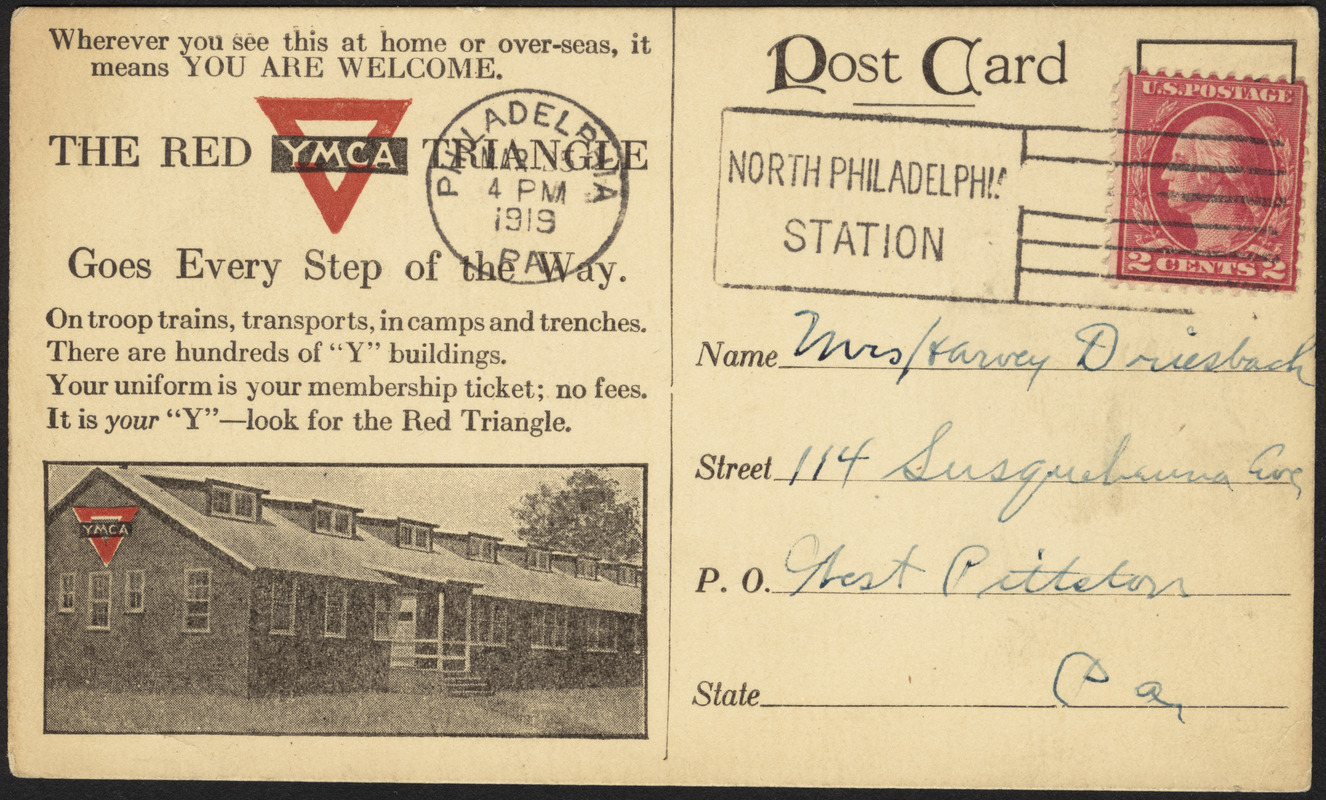 Wherever you see this at home or over-seas, it
means YOU ARE WELCOME.
THE RED YMCA TRIANGLE
Goes Every Step of the Way.
On troop trains, transports, in camps and trenches.
There are hundreds of “Y” buildings.
Your uniform is your membership ticket; no fees.
It is your “Y”—look for the Red Triangle.
YMCA
PHILADELPHIA
MAR
4 PM
1919
PA.
Post Card
U.S. POSTAGE
2 CENTS 2
NORTH PHILADELPHIA
STATION
Name Mrs Harvey Driesbach
Street 114 Susquehanna Ave
P. O. West Pittston
State Pa,